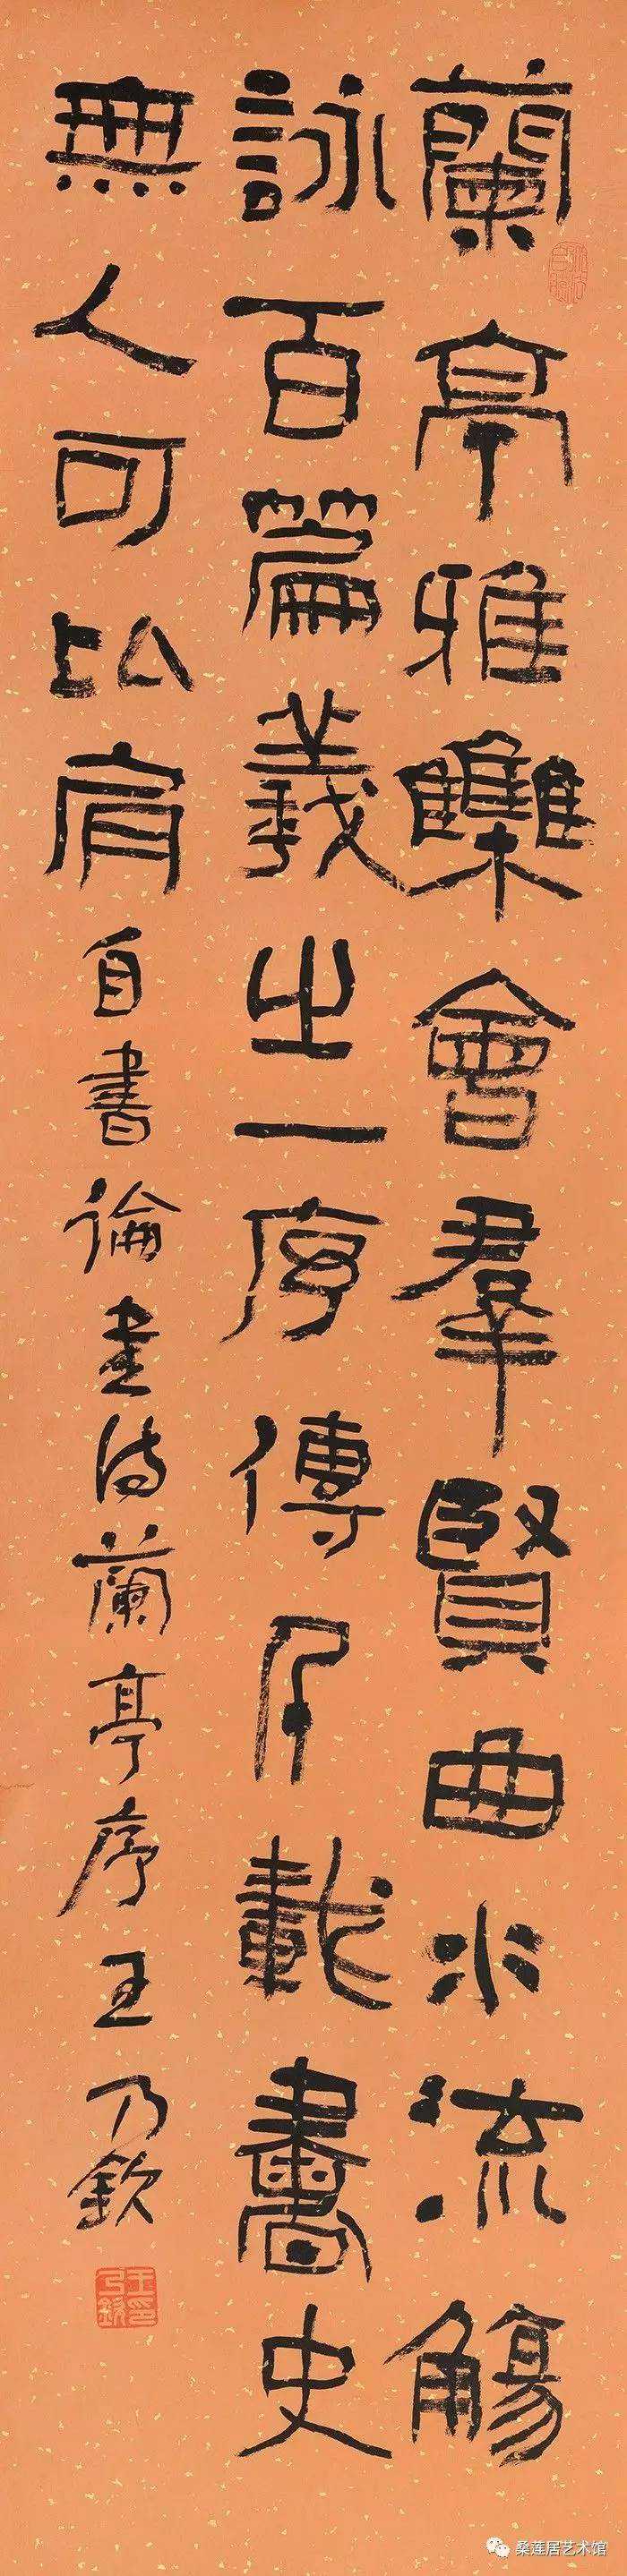 蘭亭雅雧會羣賢曲水流觴
詠百篇羲之一序傳千載書史
無人可比肩自書論書詩蘭亭序王乃欽
王乃欽印
桑莲居艺术馆